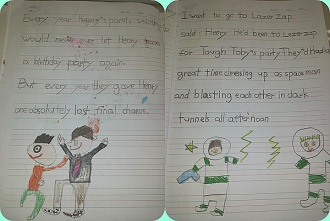 Every year Henry's parents
would never ever let Henry
a birthday party again.
But every year they gave Henry
one absolutely last, final chance.
I want to go to Lazer Zap
said Henry. He'd been to Lazer zap
for Tough Toby's party. They'd had a
great time dressing up as spaceman
and blasting each other in dark
tunnels all afternoon